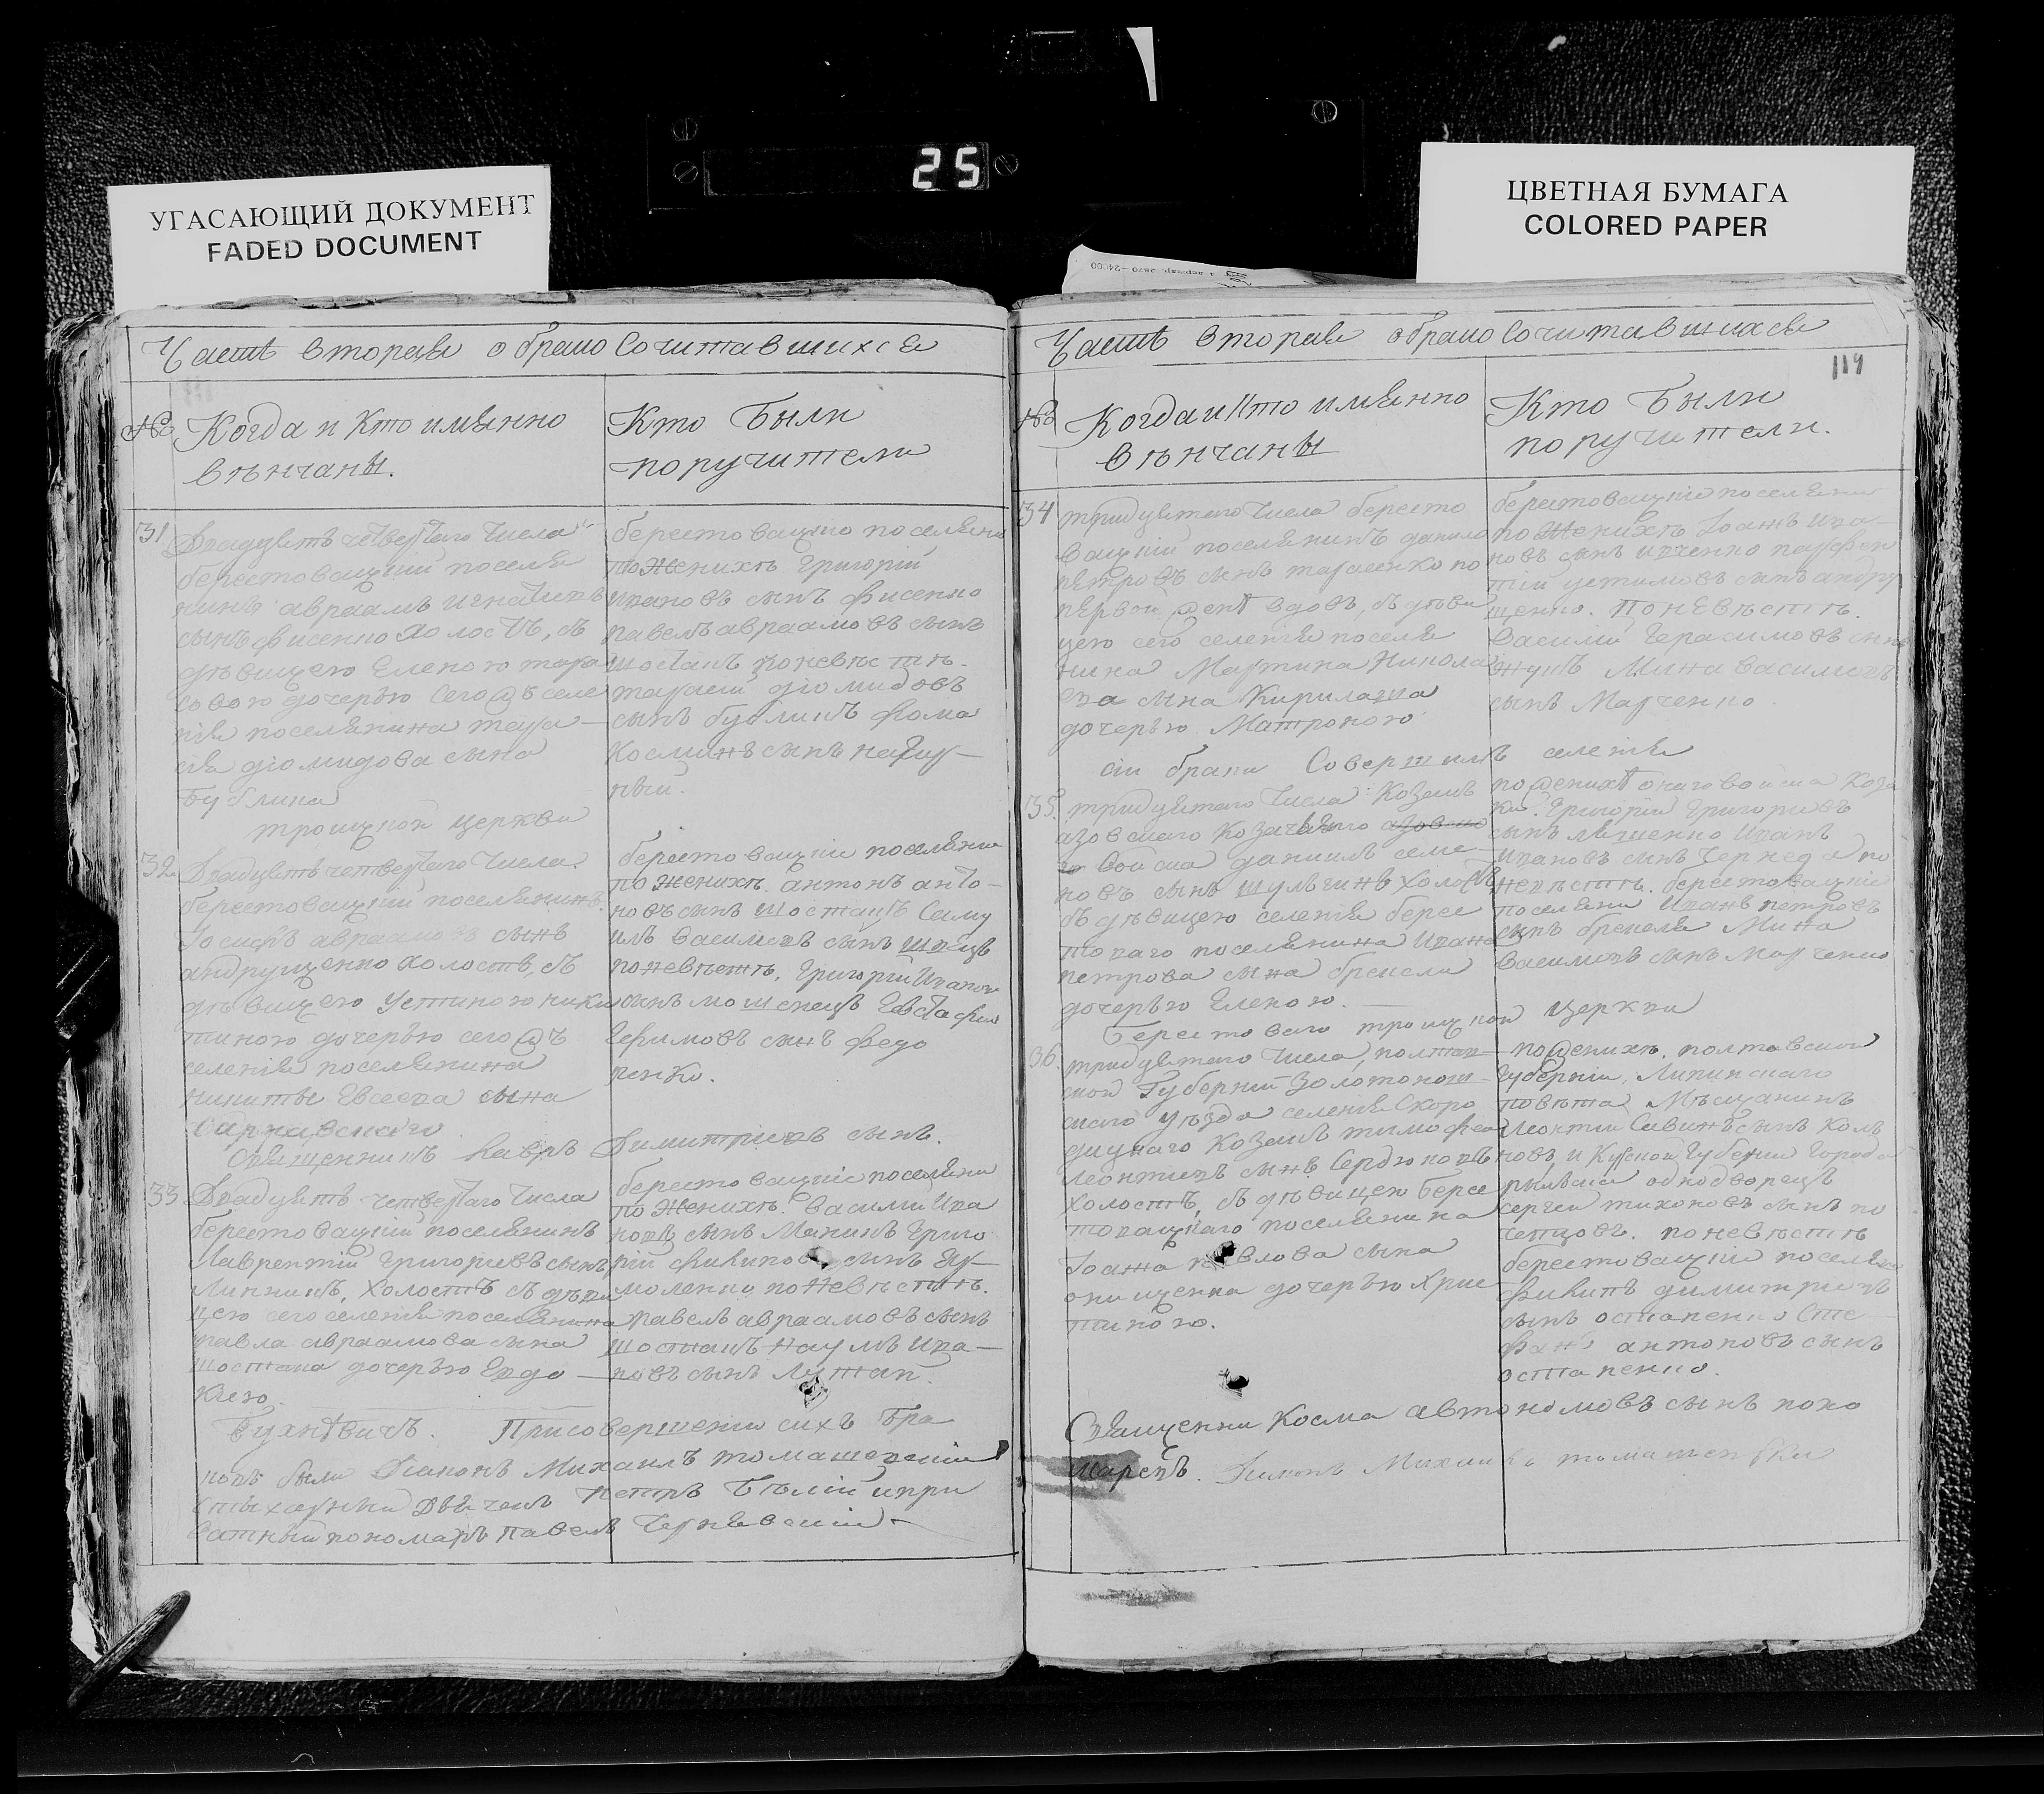 25
УГАСАЮЩИЙ ДОКУМЕНТ
FADED DOCUMENT
ЦВЕТНАЯ БУМАГА
COLORED PAPER
Часть вторая о брако Сочитавшихся
№ Когда и Кто имянно
вѣнчаны.
Кто Были
поручители
31
Двадцать четвертаго Числа
берестовацкій поселя
нинъ авраамъ игнатиевъ
сынъ фисенко холостъ, съ
дѣвицею Еленою тара
совою дочерью сего жъ селе
нія поселянина тара
сія діомидова сына
Бублика
берестовацкіе поселяни
по женихѣ Григорій
ивановъ сынъ фисенко
павелъ авраамовъ сынъ
шостакъ по невѣстѣ.
тарасій діомидовъ
сынъ бубликъ фома
Косминъ сынъ
троицкой церкви
32
Двадцать четвертаго Числа
берестовацкій поселянинъ
Іосифъ авраамовъ сынъ
андрущенко холостъ, съ
дѣвицею Устиною ники
тиною дочерью сего жъ
селенія поселянина
никиты Евсеева сына
Варнавскаго
берестовацкіе поселяни
по женихѣ антонъ анто
новъ сынъ шостакъ Саму
илъ Василиевъ сынъ швецъ
по невѣстѣ. Григорій Иванов
сынъ мошенецъ Евстафій
сынъ федо
ренко.
Священникъ Лавръ Димитриевъ сынъ.
33
Двадцать четвертаго Числа
берестовацкій поселянинъ
Лаврентій Григориевъ сынъ
Липникъ, холостъ съ дѣви
цею сего селенія поселянина
павла авраамова сына
шостака дочерью Евдо
киею.
берестовацкіе поселяни
по женихѣ. Василий Ива
новъ сынъ Маникъ Григо
рій филиповъ сынъ Яр
моленко по невѣстѣ.
павелъ авраамовъ сынъ
шостакъ наумъ ива
новъ сынъ Лутай.
Бухнѣвичъ. При совершеніи сихъ бра
ковъ были Діаконъ Михаилъ томашевскій
стыхарный дьячекъ петръ Бѣлій и при
ватный пономаръ павелъ Чернявскій
Часть вторая о брако Сочитавшихся
119
№ Когда и Кто имянно
вѣнчаны
Кто Были
поручители.
34
тридцятаго Числа бересто
вацкій поселянинъ данило
петровъ сынъ тарасенко по
первой женѣ вдовъ, съ дѣви
цею сего селенія поселя
нина Мартина Никола
ева сына Кирилаша
дочерью Матроною
берестовацкіе поселяни
по женихѣ Іоанъ ива
новъ сынъ ивженко парфен
тій устимовъ сынъ андру
щенко. По невѣстѣ.
Василий Герасимовъ сынъ
жукъ Мина Василиевъ
сынъ Марченко
сіи браки Совершилъ селенія
35.
тридцятаго Числа Козакъ
азовскаго Козачьяго
войска даниилъ семе
новъ сынъ шульгинъ холостъ
съ дѣвицею селенія бере
товаго поселянина Ивана
петрова сына брекели
дочерью Еленою.
по женихѣ онаго войска коза
ки. Григорій Григориевъ
сынъ ляшенко Иванъ
ивановъ сынъ Чернеда по
невѣстѣ. берестовацкіе
поселяни Иванъ петровъ
сынъ брекеля Мина
Василиевъ сынъ Марченко
Берестоваго троицкой Церкви
36.
тридцятаго Числа, полтав
ской Губерніи Золотонош
скаго уѣзда селенія Скоро
дицкаго Козакъ тимофей
Леонтиевъ сынъ Сердюковъ
холостъ, съ дѣвицею Бере
товацкаго поселянина
Іоана павлова сына
онищенка дочерью Хрис
тиною.
по женихѣ. полтавской
Губерніи, Липинскаго
повѣта Мѣщанинъ
Леонтий Савинъ сынъ Коль
новъ и Курской Губерніи Города
рыльска однодворецъ
сергей тихоновъ сынъ по
чепцовъ. по невѣстѣ
берестовацкіе поселяни
филипъ димитриевъ
сынъ остапенко Сте
фанъ антоновъ сынъ
остапенко.
Священникъ Косма автономовъ сынъ коно
Діаконъ Михаилъ томашевскій